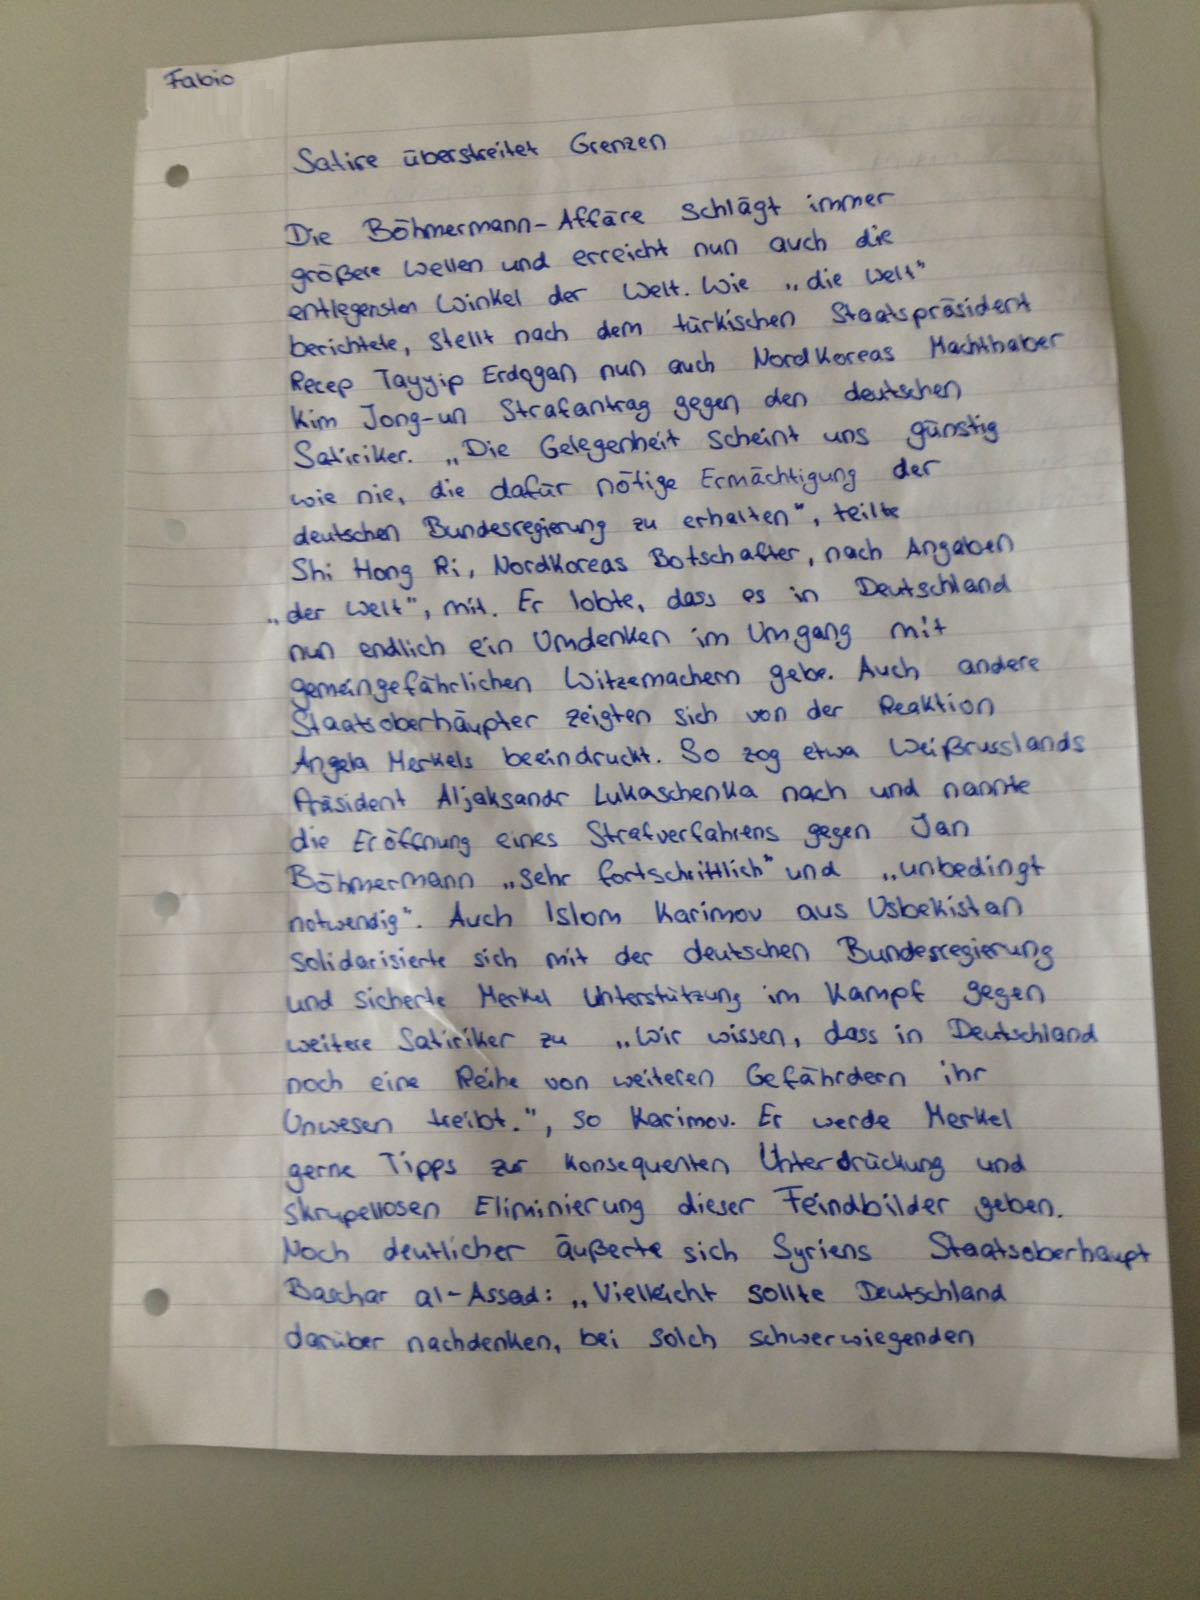 Fabio
Satire überstreitet Grenzen
Die Böhmermann-Affäre schlägt immer
größere Wellen und erreicht nun auch die
entlegensten Winkel der Welt. Wie „die Welt"
berichtete, stellt nach dem türkischen Staatspräsident
Recep Tayyip Erdogan nun auch Nordkoreas Machthaber
Kim Jong-un Strafantrag gegen den deutschen
Satiriker. „Die Gelegenheit scheint uns günstig
wie nie, die dafür nötige Ermächtigung der
deutschen Bundesregierung zu erhalten", teilte
Shi Hong Ri, Nordkoreas Botschafter, nach Angaben
„der Welt", mit. Er lobte, dass es in Deutschland
nun endlich ein Umdenken im Umgang mit
gemeingefährlichen Witzemachern gebe. Auch andere
Staatsoberhäupter zeigten sich von der Reaktion
Angela Merkels beeindruckt. So zog etwa Weißrusslands
Präsident Aljaksandr Lukaschenka nach und nannte
die Eröffnung eines Strafverfahrens gegen Jan
Böhmermann „sehr fortschrittlich" und „unbedingt
notwendig". Auch Islom Karimov aus Usbekistan
solidarisierte sich mit der deutschen Bundesregierung
und sicherte Merkel Unterstützung im Kampf gegen
weitere Satiriker zu „Wir wissen, dass in Deutschland
noch eine Reihe von weiteren Gefährdern ihr
Unwesen treibt.", so Karimov. Er werde Merkel
gerne Tipps zur konsequenten Unterdrückung und
skrupellosen Eliminierung dieser Feindbilder geben.
Noch deutlicher äußerte sich Syriens Staatsoberhaupt
Baschar al-Assad: „Vielleicht sollte Deutschland
darüber nachdenken, bei solch schwerwiegenden